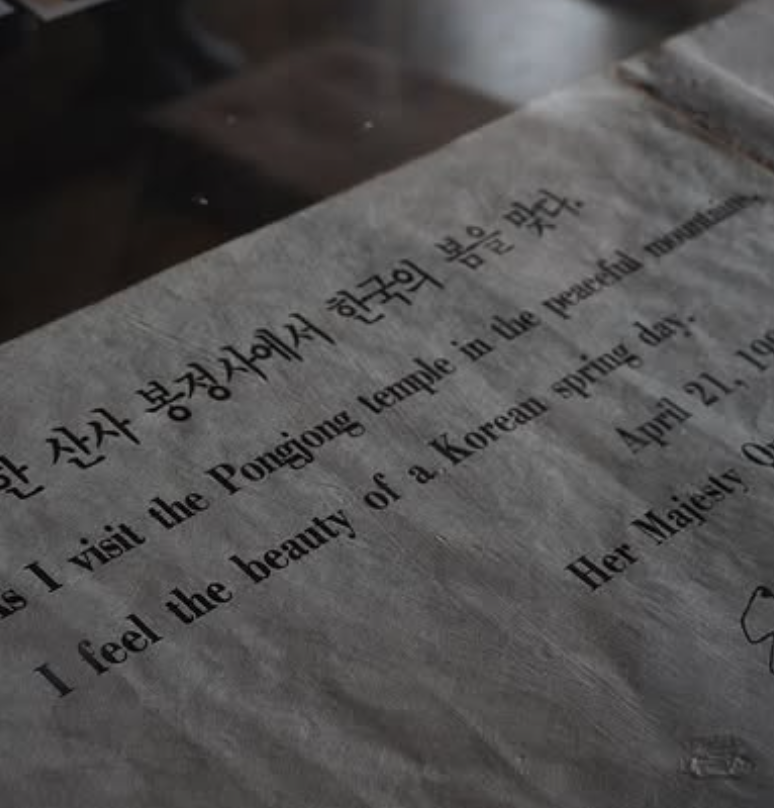 한 산사 봉정사에서 한국의 봄을 맞다.
as I visit the Pongjong temple in the peaceful mountains,
I feel the beauty of a Korean spring day.
April 21, 19
Her Majesty Qu